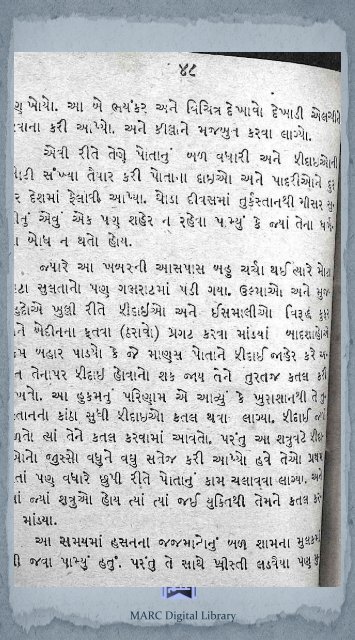 ૪૮
ણુ ખોયો. આ બે ભયંકર અને વિચિત્ર દેખાવો દેખાડી એલચીને
રવાના કરી આપ્યો. અને કીલ્લાને મજબુત કરવા લાગ્યો.
એવી રીતે તેણે પોતાનું બળ વધારી અને ફીદાઇઓની
સંખ્યા તૈયાર કરી પોતાના દાઇઓ અને પાદરીઓને દુર
દેશમાં ફેલાવી આપ્યા. થોડા દીવસમાં તુર્કસ્તાનથી મીસર સુ
એવું એક પણ શહેર ન રહેવા પામ્યું કે જ્યાં તેના ધર્મ
બોધ ન થતો હોય.
જ્યારે આ ખબરની આસપાસ બહુ ચર્ચા થઈ ત્યારે મોટા
સુલતાનો પણ ગભરાટમાં પડી ગયા. ઉલ્માઓ અને મુજ
ખુલી રીતે ફીદાઈઓ અને ઈસમાલીઓ વિરૂદ્ધ કુફ્ર
ને બેદીનના ફતવા (ઠરાવો) પ્રગટ કરવા માંડયાં બાદશાહોએ
બહાર પાડ્યો કે જે માણુસ પોતાને ફીદાઈ જાહેર કરે અ
તેનાપર ફીદાઈ હોવાનો શક જાય તેને તુરતજ કતલ કરી
આ હુકમનું પરિણામ એ આવ્યું કે ખુરાશાનથી તે તુ
સ્તાનના કાંઠા સુધી ફીદાઇઓ કતલ થવા લાગ્યા. ફીદાઈ જ્યાં
ત્યાં તેને કતલ કરવામાં આવતો. પરંતુ આ શત્રુવટે ફીદા
જુસ્સો વધુને વધુ સતેજ કરી આપ્યો હવે તેઓ પ્રથમ
પણ વધારે છુપી રીતે પોતાનું કામ ચલાવવા લાગ્યા. અને
જ્યાં શત્રુઓ હોય ત્યાં ત્યાં જઈ યુક્તિથી તેમને કતલ કર
માંડયા.
આ સમયમાં હસનના જજમાનોનું બળ શામના મુલકમાં
જવા પામ્યું હતું. પરંતુ તે સાથે ખ્રીસ્તી લડવૈયા પણ
MARC Digital Library